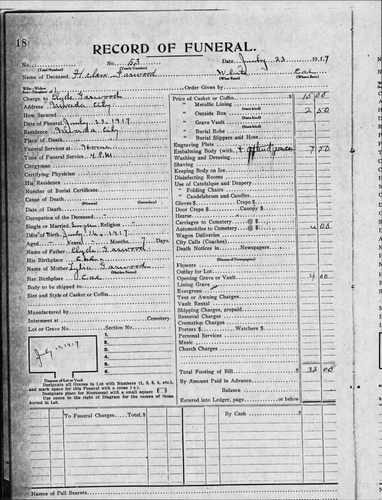 18
RECORD OF FUNERAL.
No. No. 53 Date July 23 1917
(Total Number) (Yearly Number)
Name of Deceased Garwood White Cal
(What Race)
Charge to Clyde Garwood Order Given by
Address Nevada City Price of Casket or Coffin 15 00
" Metallic Lining
How Secured " Outside Box 2 50
Date of Funeral July 23, 1917 " Grave Vault
Residence Nevada City " Burial Robe
Place of Death " Burial Slippers and Hose
Funeral Services at Home Engraving Plate
Time of Funeral Service 4 P.M. Embalming Body (with 7 50
Clergyman Washing and Dressing
Certifying Physician Shaving
His Residence Keeping Body on Ice
Number of Burial Certificate Disinfecting Rooms
Cause of Death Use of Catafalque and Drapery
" Folding Chairs
Date of Death " Candelabrum and Candles
Occupation of the Deceased Gloves $ Crape $
Single or Married Single Religion Door Crape $ Canopy $
Date of Birth July 16, 1917 Hearse
Aged Years Months 7 Days Carriages to Cemetery @ $
Name of Father Clyde Garwood Automobiles to Cemetery @ $ 4 00
His Birthplace Wagon Deliveries
Name of Mother Garwood City Calls (Coaches)
Her Birthplace Cal Death Notices in Newspapers
Body to be Shipped to (Names of Newspapers)
Size and Style of Casket or Coffin Flowers
Outlay for Lot
Manufactured by Opening Grave or Vault 4 00
Interment at Cemetery Lining Grave
Lot or Grave No. Section No. Evergreen
Tent or Awning Charges
1. Vault Rental
2. Shipping Charges, prepaid
3. Removal Charges
4. Cremation Charges
5. Porters $ Watchers $
6. Personal Services
7. Music
Church Charges
Diagram of Lot or Vault
Designate all Graves in Lot with Numbers (1, 2, 3, 4, etc.),
and mark space for this Funeral with a cross (+). Total Footing of Bill $ 33 00
Designate place for Monument with a small square (□) By Amount Paid in Advance
Use space to the right of Diagram for the names of those Balance
buried in Lot. Entered into Ledger, page or below
To Funeral Charges Total, $ By Cash $
Names of Pall Bearers